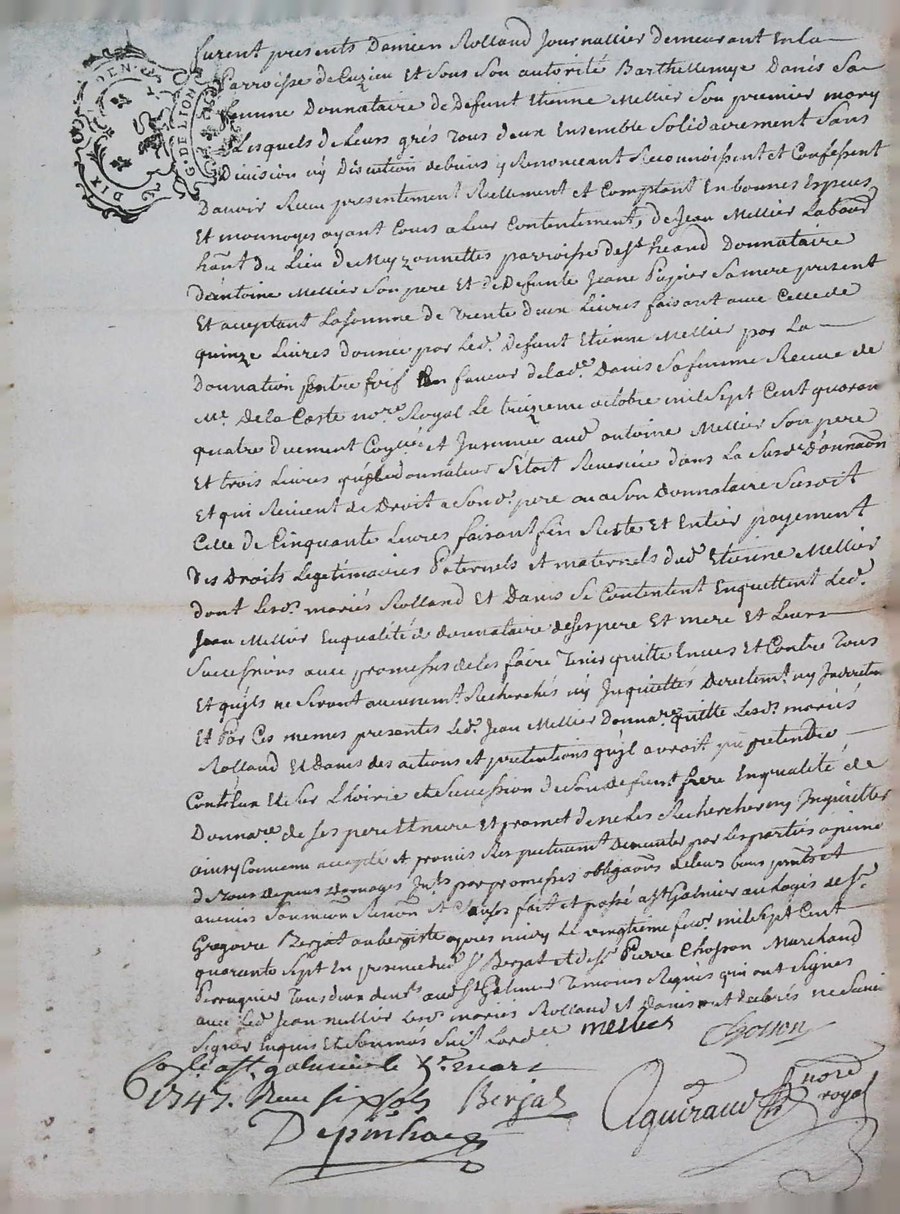 G. DE LION
DIX DEN.
furent presents Damien Rolland Journallier demeurant En la
Parroisse de Cuzieu Et sous son autorité Barthellemye Danis Sa
femme Donnataire de Defunt Etienne Mellier Son premier mary
Lesquels de Leurs grés tous deux Ensemble Solidairement Sans
Division ny Discution de biens y Renonceant Reconnoissent et Confessent
D'avoir Receu presentement Reellement et Comptant En bonnes Especes
Et monnoyes ayant Cours a Leur Contentement, de Jean Mellier Labour
du Lieu de Mayzonnettes parroisse de St heand Donnataire
d'antoine Mellier Son pere Et de Defunte Jeane Pupier Sa mere present
Et aceptant La somme de Trente deux Livres faisant avec Celle de
quinze Livres Donnée par Led. Defunt Etienne Mellier par La
Donnation en faveur de lad. Danis Sa femme Receue de
Me. De la Coste nore. Royal Le treizieme octobre mil Sept Cent quaran
quatre duement et Jnsinuée aud. antoine Mellier Son pere
Et trois Livres Donnateur S'étoit Reservée dans La Susde. D'onnaon
Et qui Revient de Droit a Sond. pere ou a Son Donnataire Susdit
Celle de Cinquante Livres faisant fin Reste Et Entier payement
Des Droits Legitimaires Paternels et maternels dud. Etienne Mellier
dont Lesd. mariés Rolland Et Danis Se Contentent Enquittent Led.
Jean Mellier En qualité de donnataire de Ses pere Et mere Et Leurs
Successions avec promesses de les faire Tenir quitte Envers Et Contre Tous
Et qu'ils ne Seront aucunemt. Recherchés ny Jnquiettés Directemt. ny Jndirectem
Et Par Ces memes presentes Led. Jean Mellier Donnare. quitte Lesd. mariés
Rolland Et Danis des actions Et pretentions qu'jl avroit pû pretendre
Contr'eux Et Sur L'hoirie et Succession de Son defunt. frere En qualité de
Donnare. de Ses pere Et mere Et promet de ne Les Rechercher ny Jnquietter
ainsy Convenu accepté et promis Respectivemt. par Les parties a peine
de Tous depens domages Jnts. par promesses obligaons de leurs biens pnts et
avenirs Soumion Renon et Clauses fait et passé a St Galmier au Logis de Sr.
Gregoire Berjat aubergiste apres midy Le vingtième fevr. mil Sept Cent
quarante Sept En presence dud. Sr Berjat et de Sr. Pierre Chosson Marchand
Perruquier Tous deux demts. aud. St Galmier Temoins Requis qui ont Signés
avec Led. Jean Mellier Lesd. mariés Rolland et Danis ont declarés ne Savoir
Signer Enquis Et Sommés
mellier Chosson
Collé a St. galmier le mars
1747. Receu six sols
Berjat
Aguiraud nore
royal
Depinhac